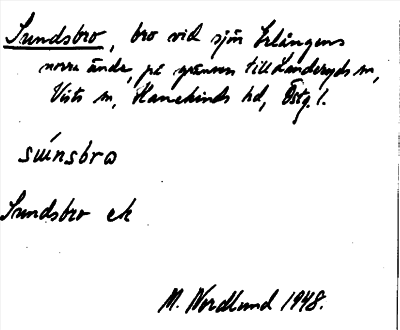 Sundsbro, bro vid sjön Erlångens
norra ände, på gränsen till Landeryds sn,
Vists sn, Hanekinds hd, Östg. l.
súnsbrω
Sundsbro ek
M. Nordlund 1948.